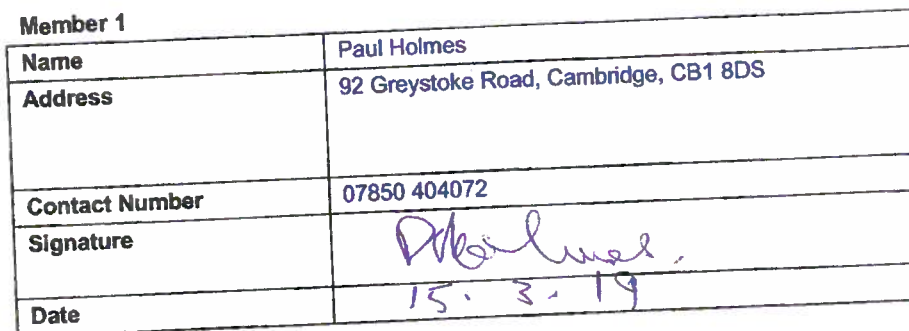 Member 1
Name Paul Holmes
Address 92 Greystoke Road, Cambridge, CB1 8DS
Contact Number 07850 404072
Signature
Date 15. 3. 19